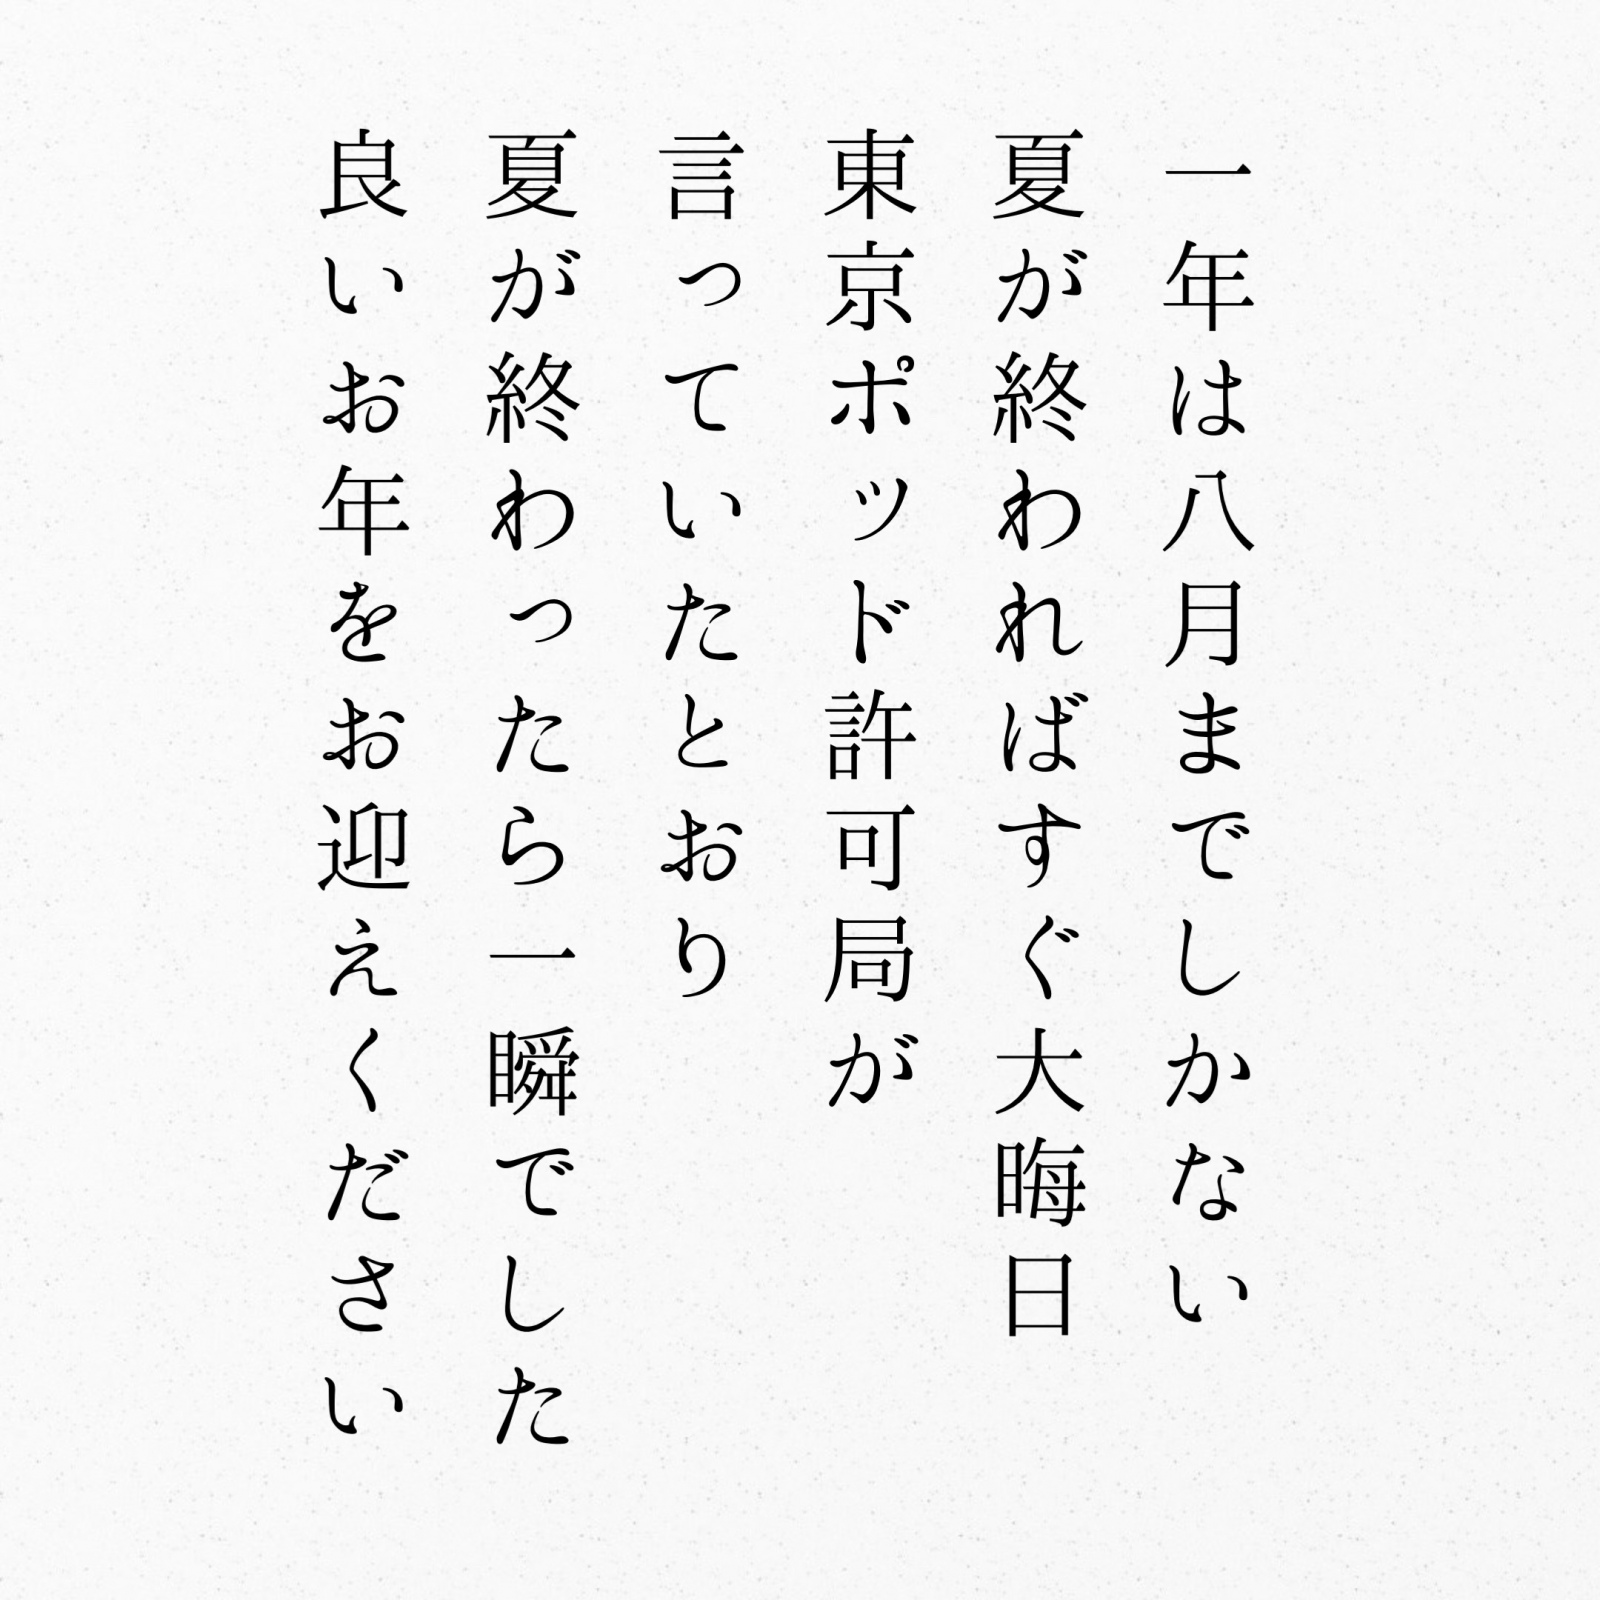 一年は八月までしかない
夏が終わればすぐ大晦日
東京ポッド許可局が
言っていたとおり
夏が終わったら一瞬でした
良いお年をお迎えください